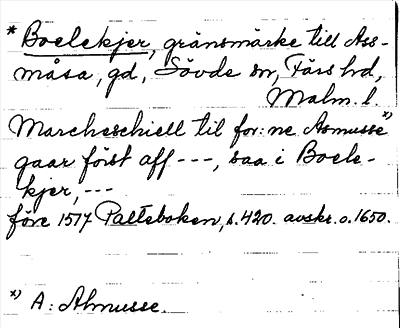 * Boelekjer, gränsmärke till Ass-
måsa, gd, Sövde sn, Färs hd,
Malm. l.
Marcheschiell til for: ne Asmusse x)
gaar först aff ---, saa i Boele-
kjer, ---
före 1517 Palteboken, s. 420. avskr. o. 1650.
x) A: Almusse.